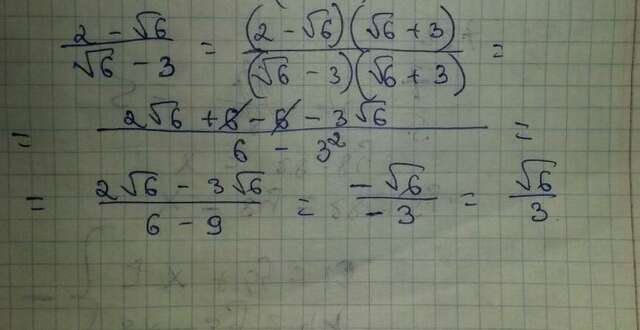 (2 - √6)/(√6 - 3) = ((2 - √6)(√6 + 3))/((√6 - 3)(√6 + 3)) =
= (2√6 + 6 - 6 - 3√6)/(6 - 3²) =
= (2√6 - 3√6)/(6 - 9) = (-√6)/(-3) = √6/3